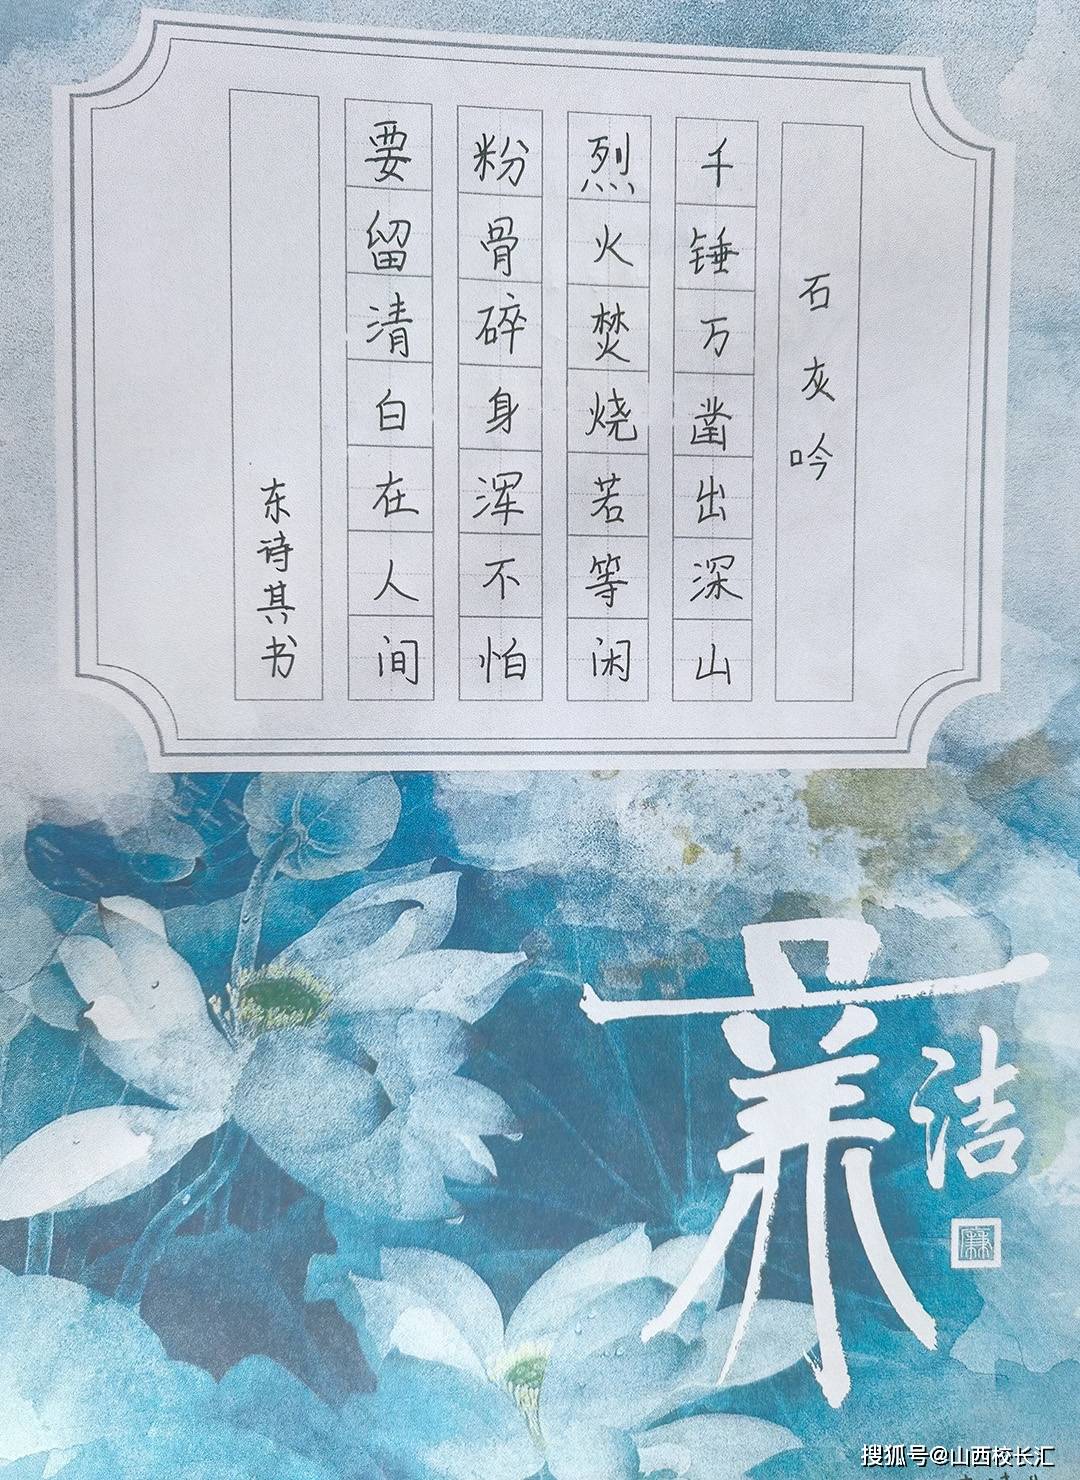 石灰吟
千锤万凿出深山
烈火焚烧若等闲
粉骨碎身浑不怕
要留清白在人间
东诗其书
洁
廉
搜狐号@山西校长汇